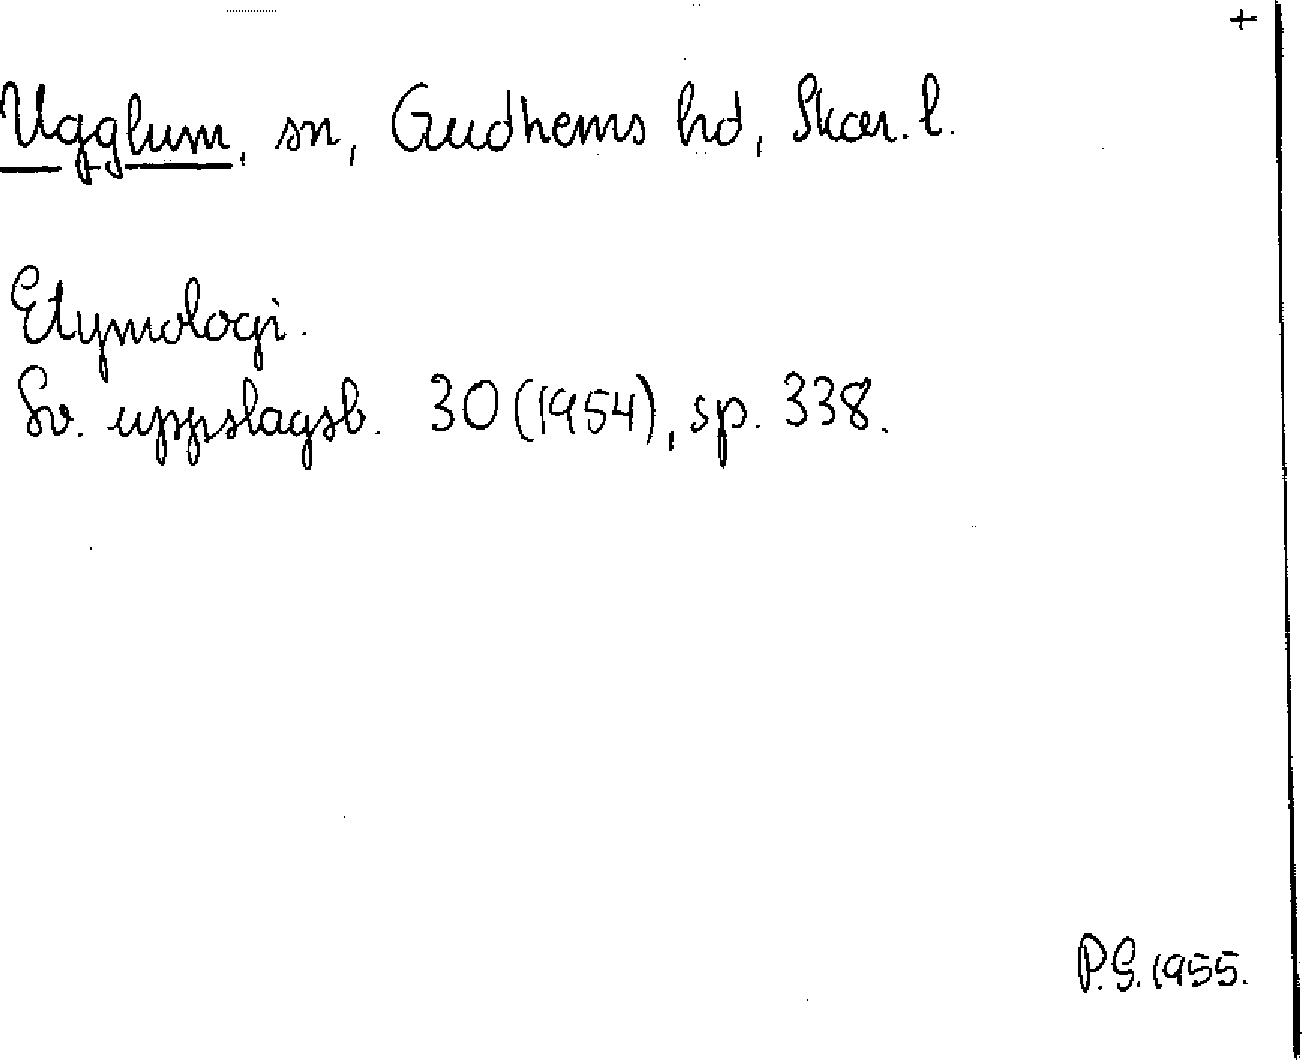 +
Ugglum, sn, Gudhems hd, Skar. l.
Etymologi.
Sv. uppslagsb. 30 (1954), sp. 338.
P.G. 1955.